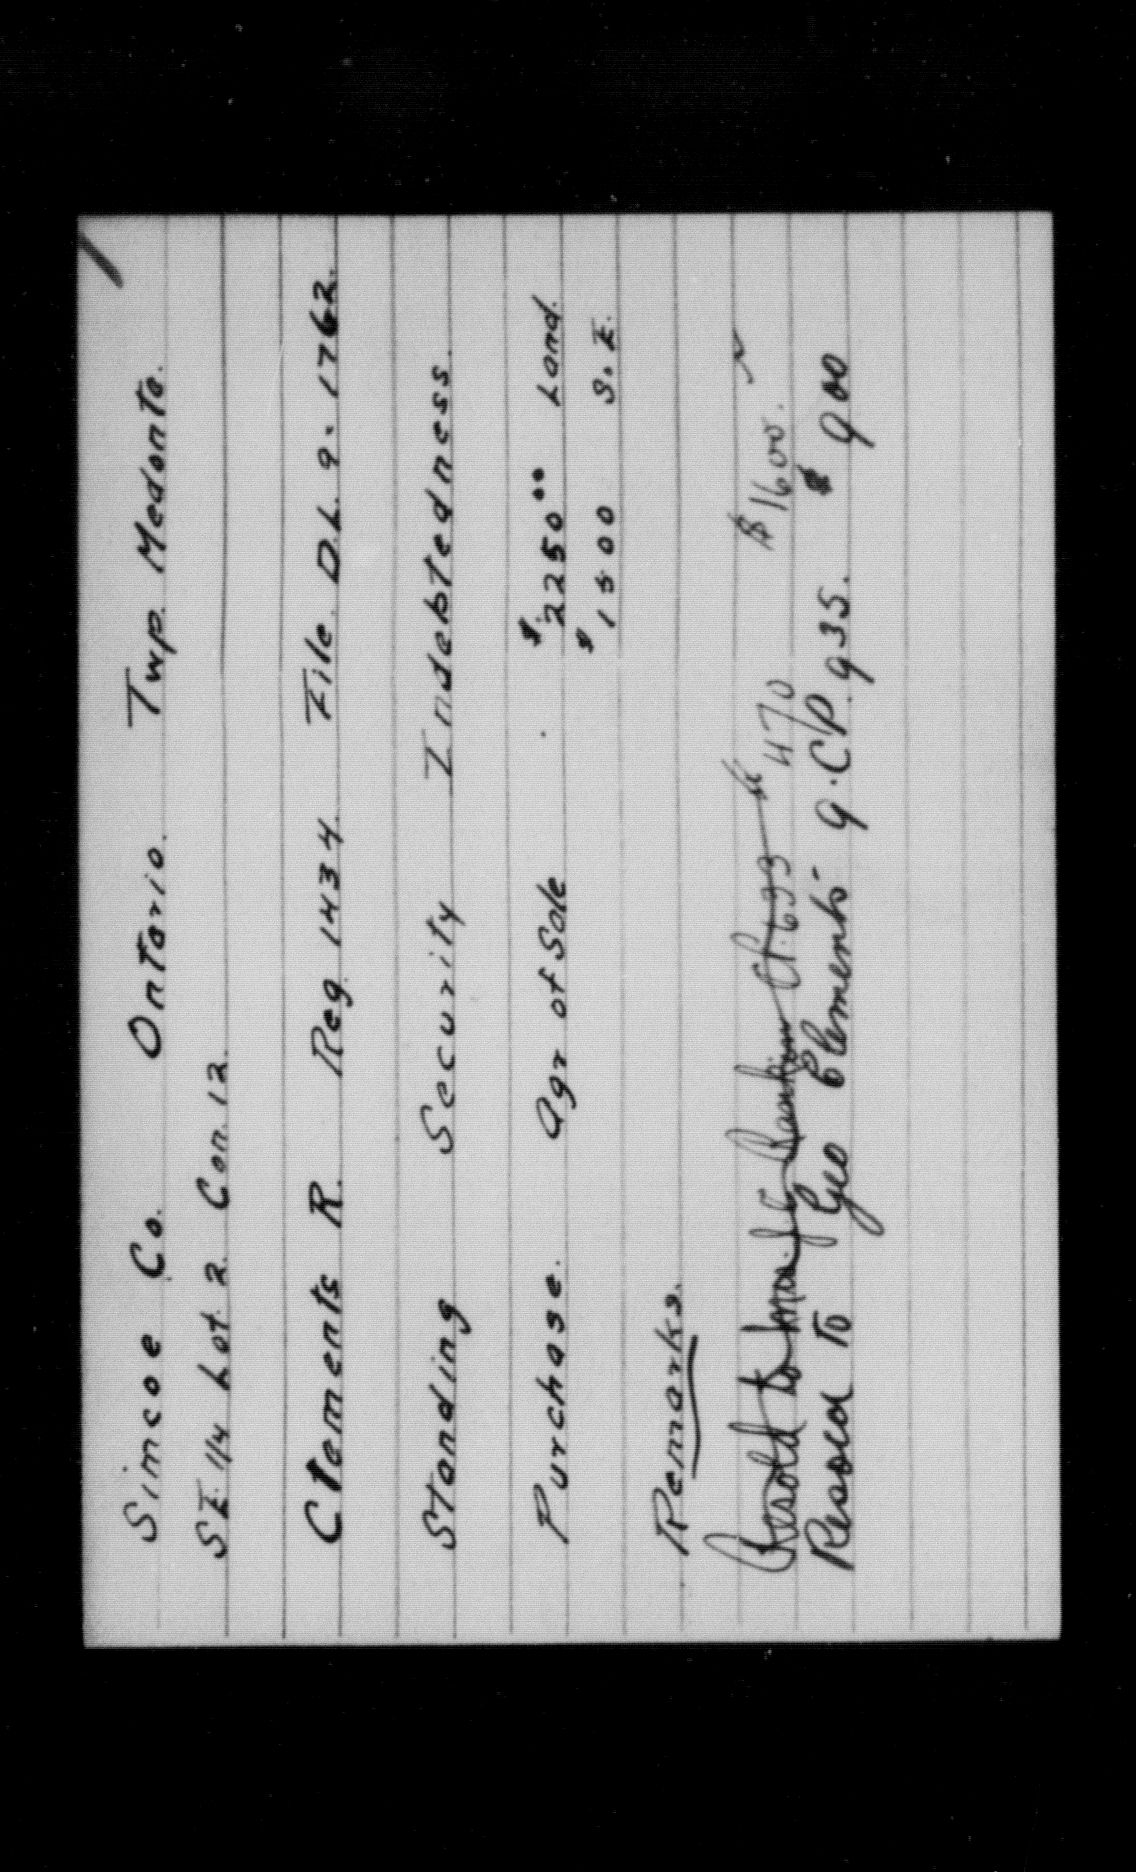 Simcoe Co. Ontario. Twp. Medonte.
SE 1/4 Lot 2 Con. 12.
Clements R. Reg. 1434. File. D.L. 9. 1762.
Standing Security Indebtedness.
Purchase. Agr of Sale $2250.00 Land.
$1500 S.E.
Remarks.
Resold to J G Rankin Cl. 633 470 $1600.
Resold To Geo Clements 9.CP.935. $900